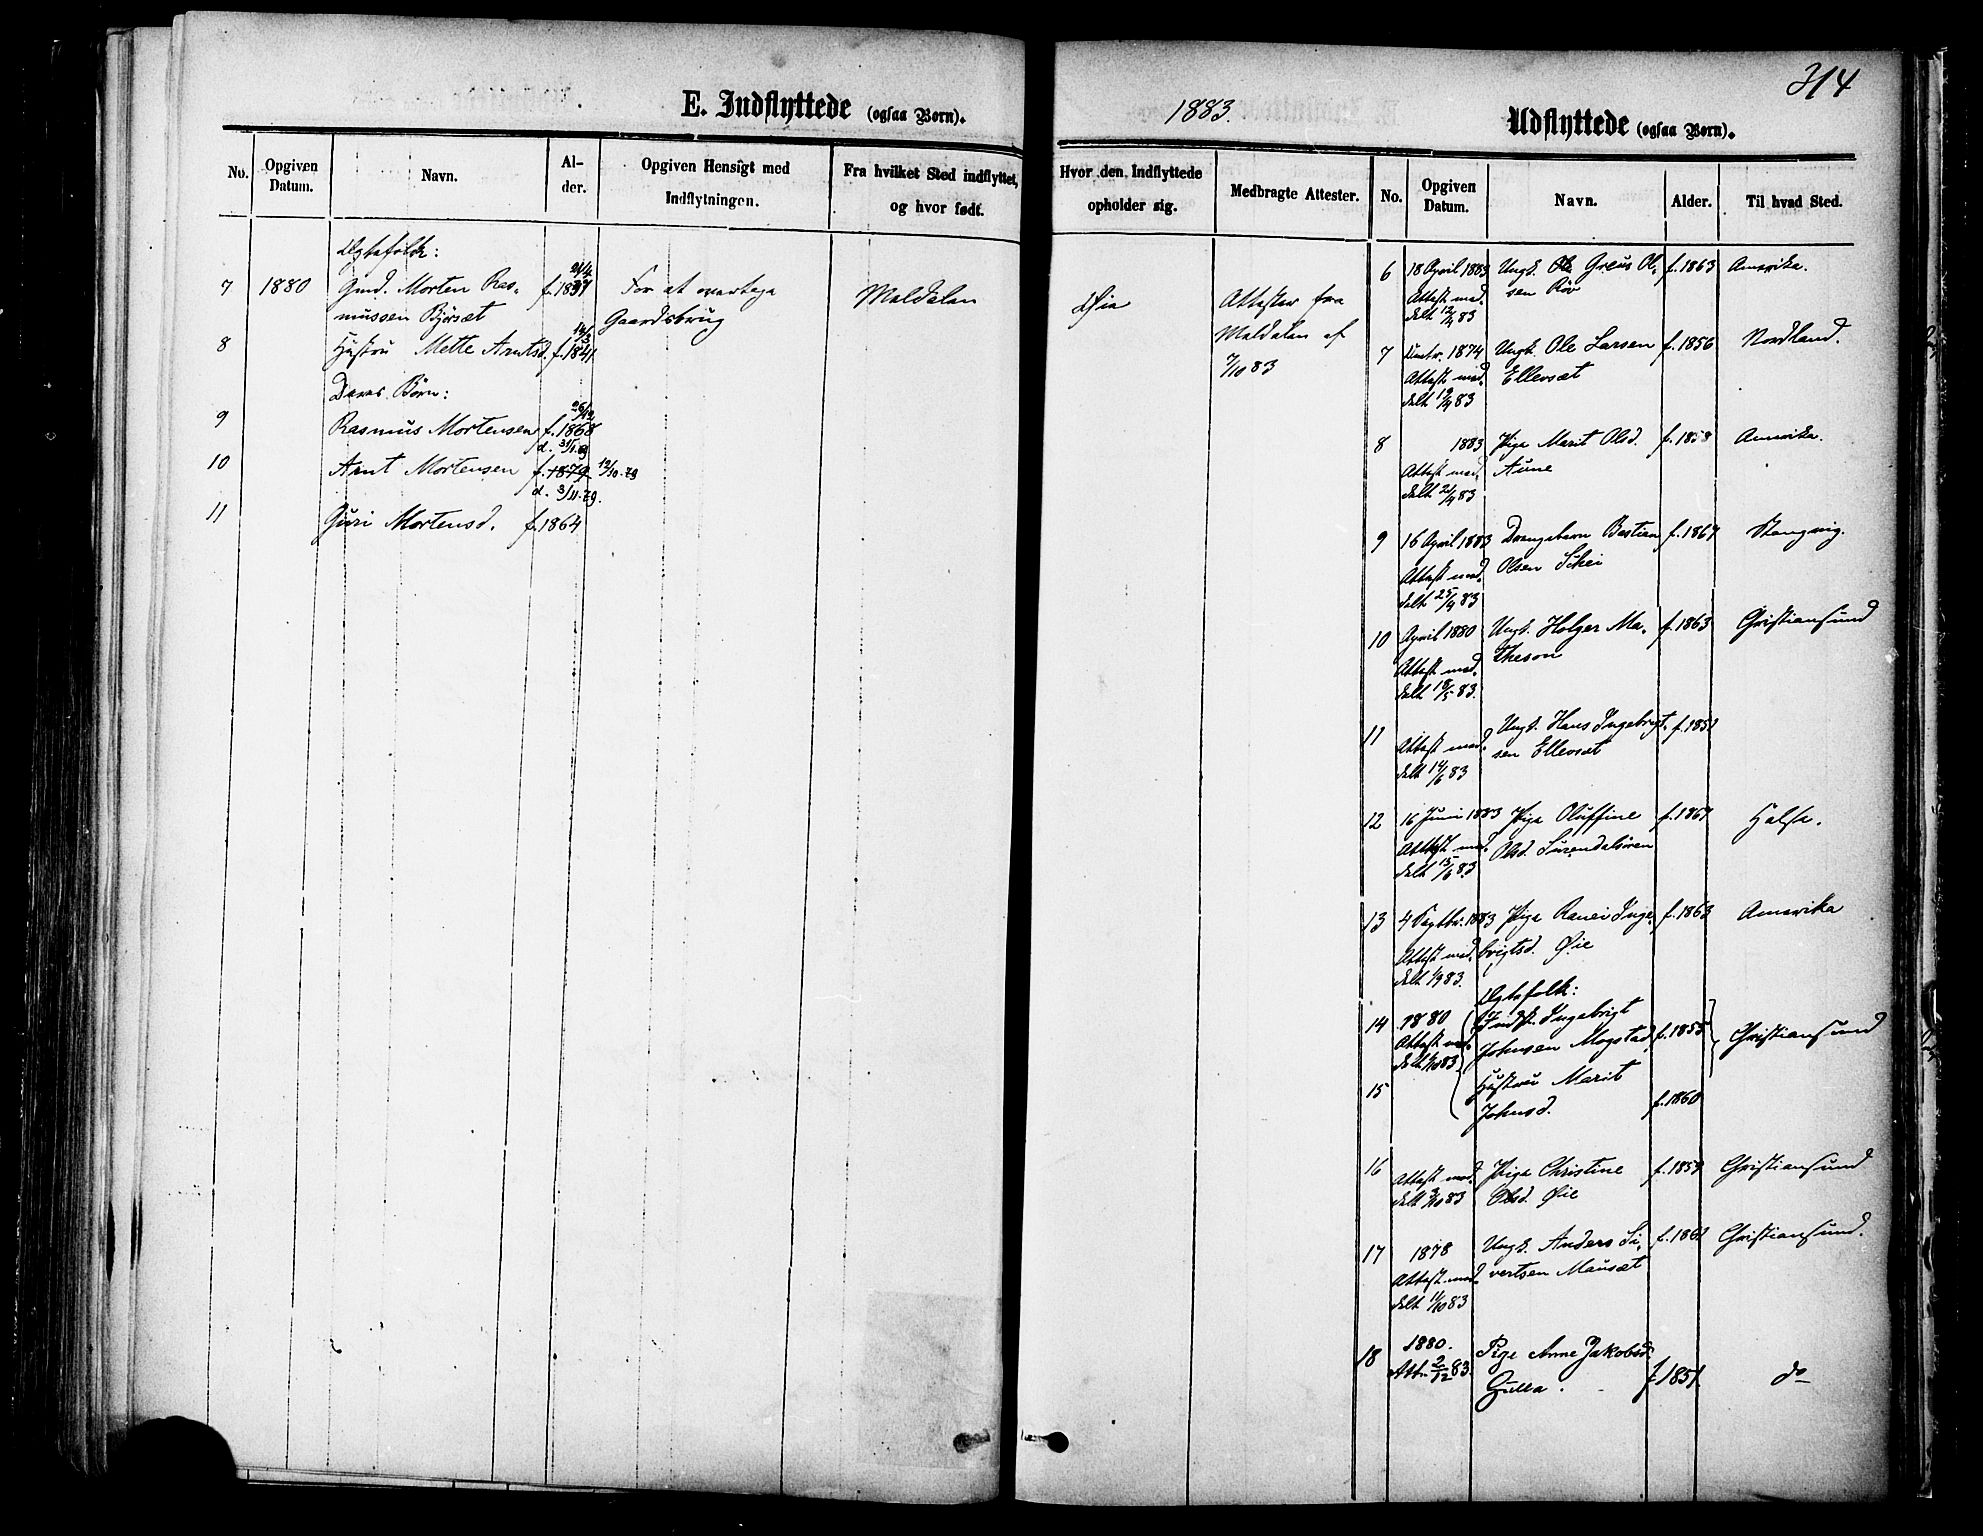 314
E. Indflyttede (ogsaa Børn).
1883.
Udflyttede (ogsaa Børn).
No.
Opgiven Datum.
Navn.
Al-
der.
Opgiven Hensigt med
Indflytningen.
Fra hvilket Sted indflyttet,
og hvor født.
Hvor den Indflyttede
opholder sig.
Medbragte Attester.
Ægtefolk:
7 1880 Gmd. Morten Ras-
mussen Bjørsæt
f. 1837
For at overtage
Gaardsbrug
Meldalen
Øie
Attester fra
Meldalen af
7/10 83
8 Hustru Mette Arntsd. f. 1841
Deres Børn:
9 Rasmus Mortensen f. 1868
d. 31/1.69
10 Arnt Mortensen f. 1879 12/10.79
d. 3/11.79.
11 Guri Mortensd. f. 1864
No.
Opgiven Datum.
Navn.
Alder.
Til hvad Sted.
6 18 April 1883 Ungk. Ole Greus Ol- f. 1863 Amerika.
Attest med- sen Røv
delt 12/4 83
7 1874 Ungk. Ole Larsen f. 1856 Nordland.
Attest med- Ellevsæt
delt 12/4 83
8 1883 Pige Marit Olsd. f. 1858 Amerika.
Attest med- Aune
delt 21/4 83
9 16 April 1883 Drengebarn Bastian f. 1867 Stangvig.
Attest med- Olsen Skei
delt 25/4 83
10 April 1880 Ungk. Holger Ma- f. 1863 Christiansund
Attest med- theson
delt 18/5 83.
11 Ungk. Hans Ingebrigt- f. 1851
Attest med- sen Ellevsæt
delt 14/6 83
12 16 Juni 1883 Pige Oluffine f. 1867 Halse.
Attest med- Olsd. Surendalsøren
delt 15/6 83
13 4 Septbr. 1883 Pige Ranei Inge- f. 1863 Amerika
Attest med- brigtsd. Øie
delt 1/9 83.
Ægtefolk:
14 1880 Indst. Ingebrigt
Attest med- Johnsen Mogstad f. 1855 Christiansund
delt 1/10 83
15 Hustru Marit
Johnsd. f. 1860
16 Pige Christine f. 1859 Christiansund
Attest med- Olsd. Øie
delt 3/10 83
17 1878 Ungk. Anders Si- f. 1861 Christiansund.
Attest med- vertsen Mauset
delt 11/10 83
18 1880. Pige Anne Jakobsd.
Att. 2/12 83. Gulla. f. 1851. do